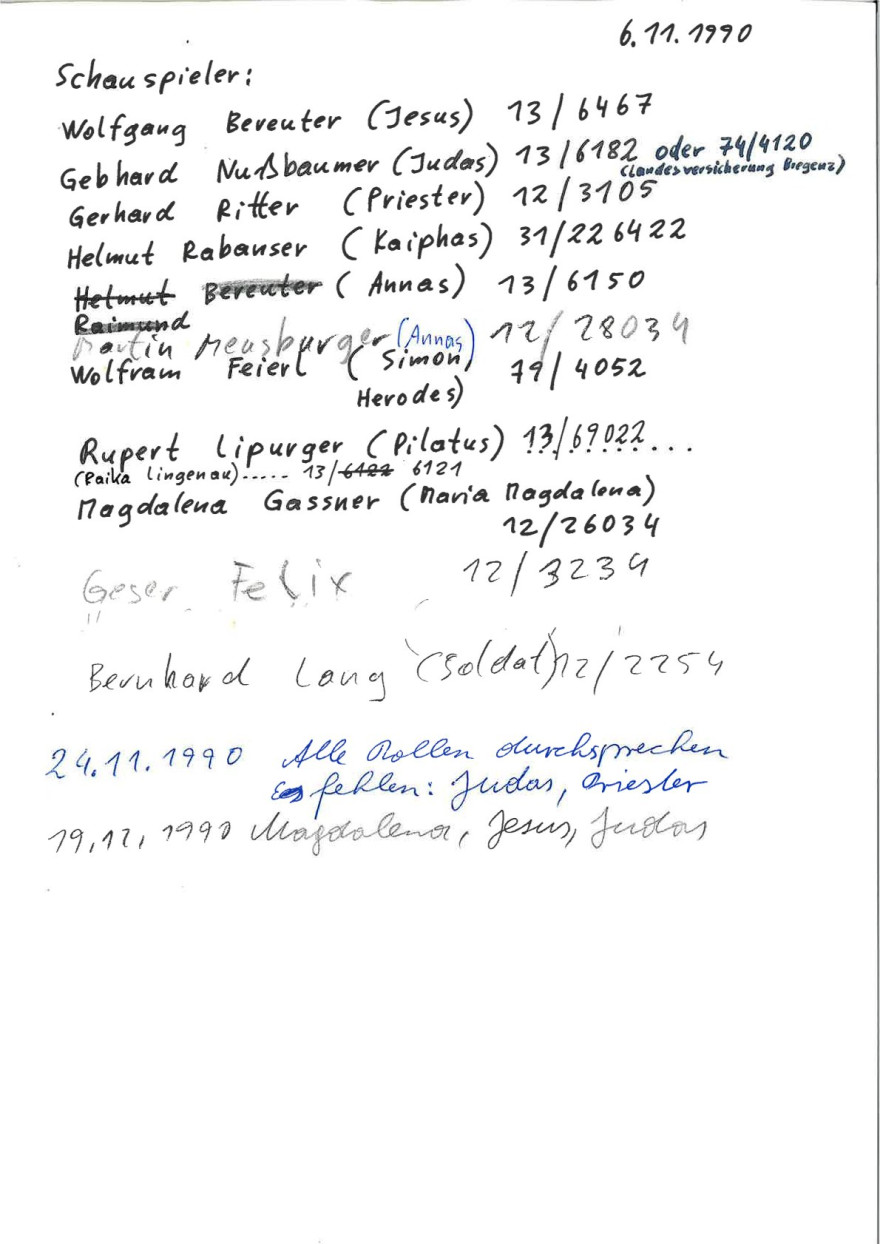 6.11.1990
Schauspieler:
Wolfgang Bereuter (Jesus) 13/6467
Gebhard Nußbaumer (Judas) 13/6182 oder 74/4120
(Landesversicherung Bregenz)
Gerhard Ritter (Priester) 12/3105
Helmut Rabanser (Kaiphas) 31/226422
Helmut Bereuter (Annas) 13/6150
Raimund
Martin Meusburger (Annas) 12/28034
Wolfram Feierl (Simon, 79/4052
Herodes)
Rupert Lipurger (Pilatus) 13/69022...
(Paika Lingenau)..... 13/6122 6121
Magdalena Gassner (Maria Magdalena)
12/26034
Geser Felix 12/3234
Bernhard Lang (Soldat) 12/2254
24.11.1990 Alle Rollen durchsprechen
Es fehlen: Judas, Priester
19.12.1990 Magdalena, Jesus, Judas